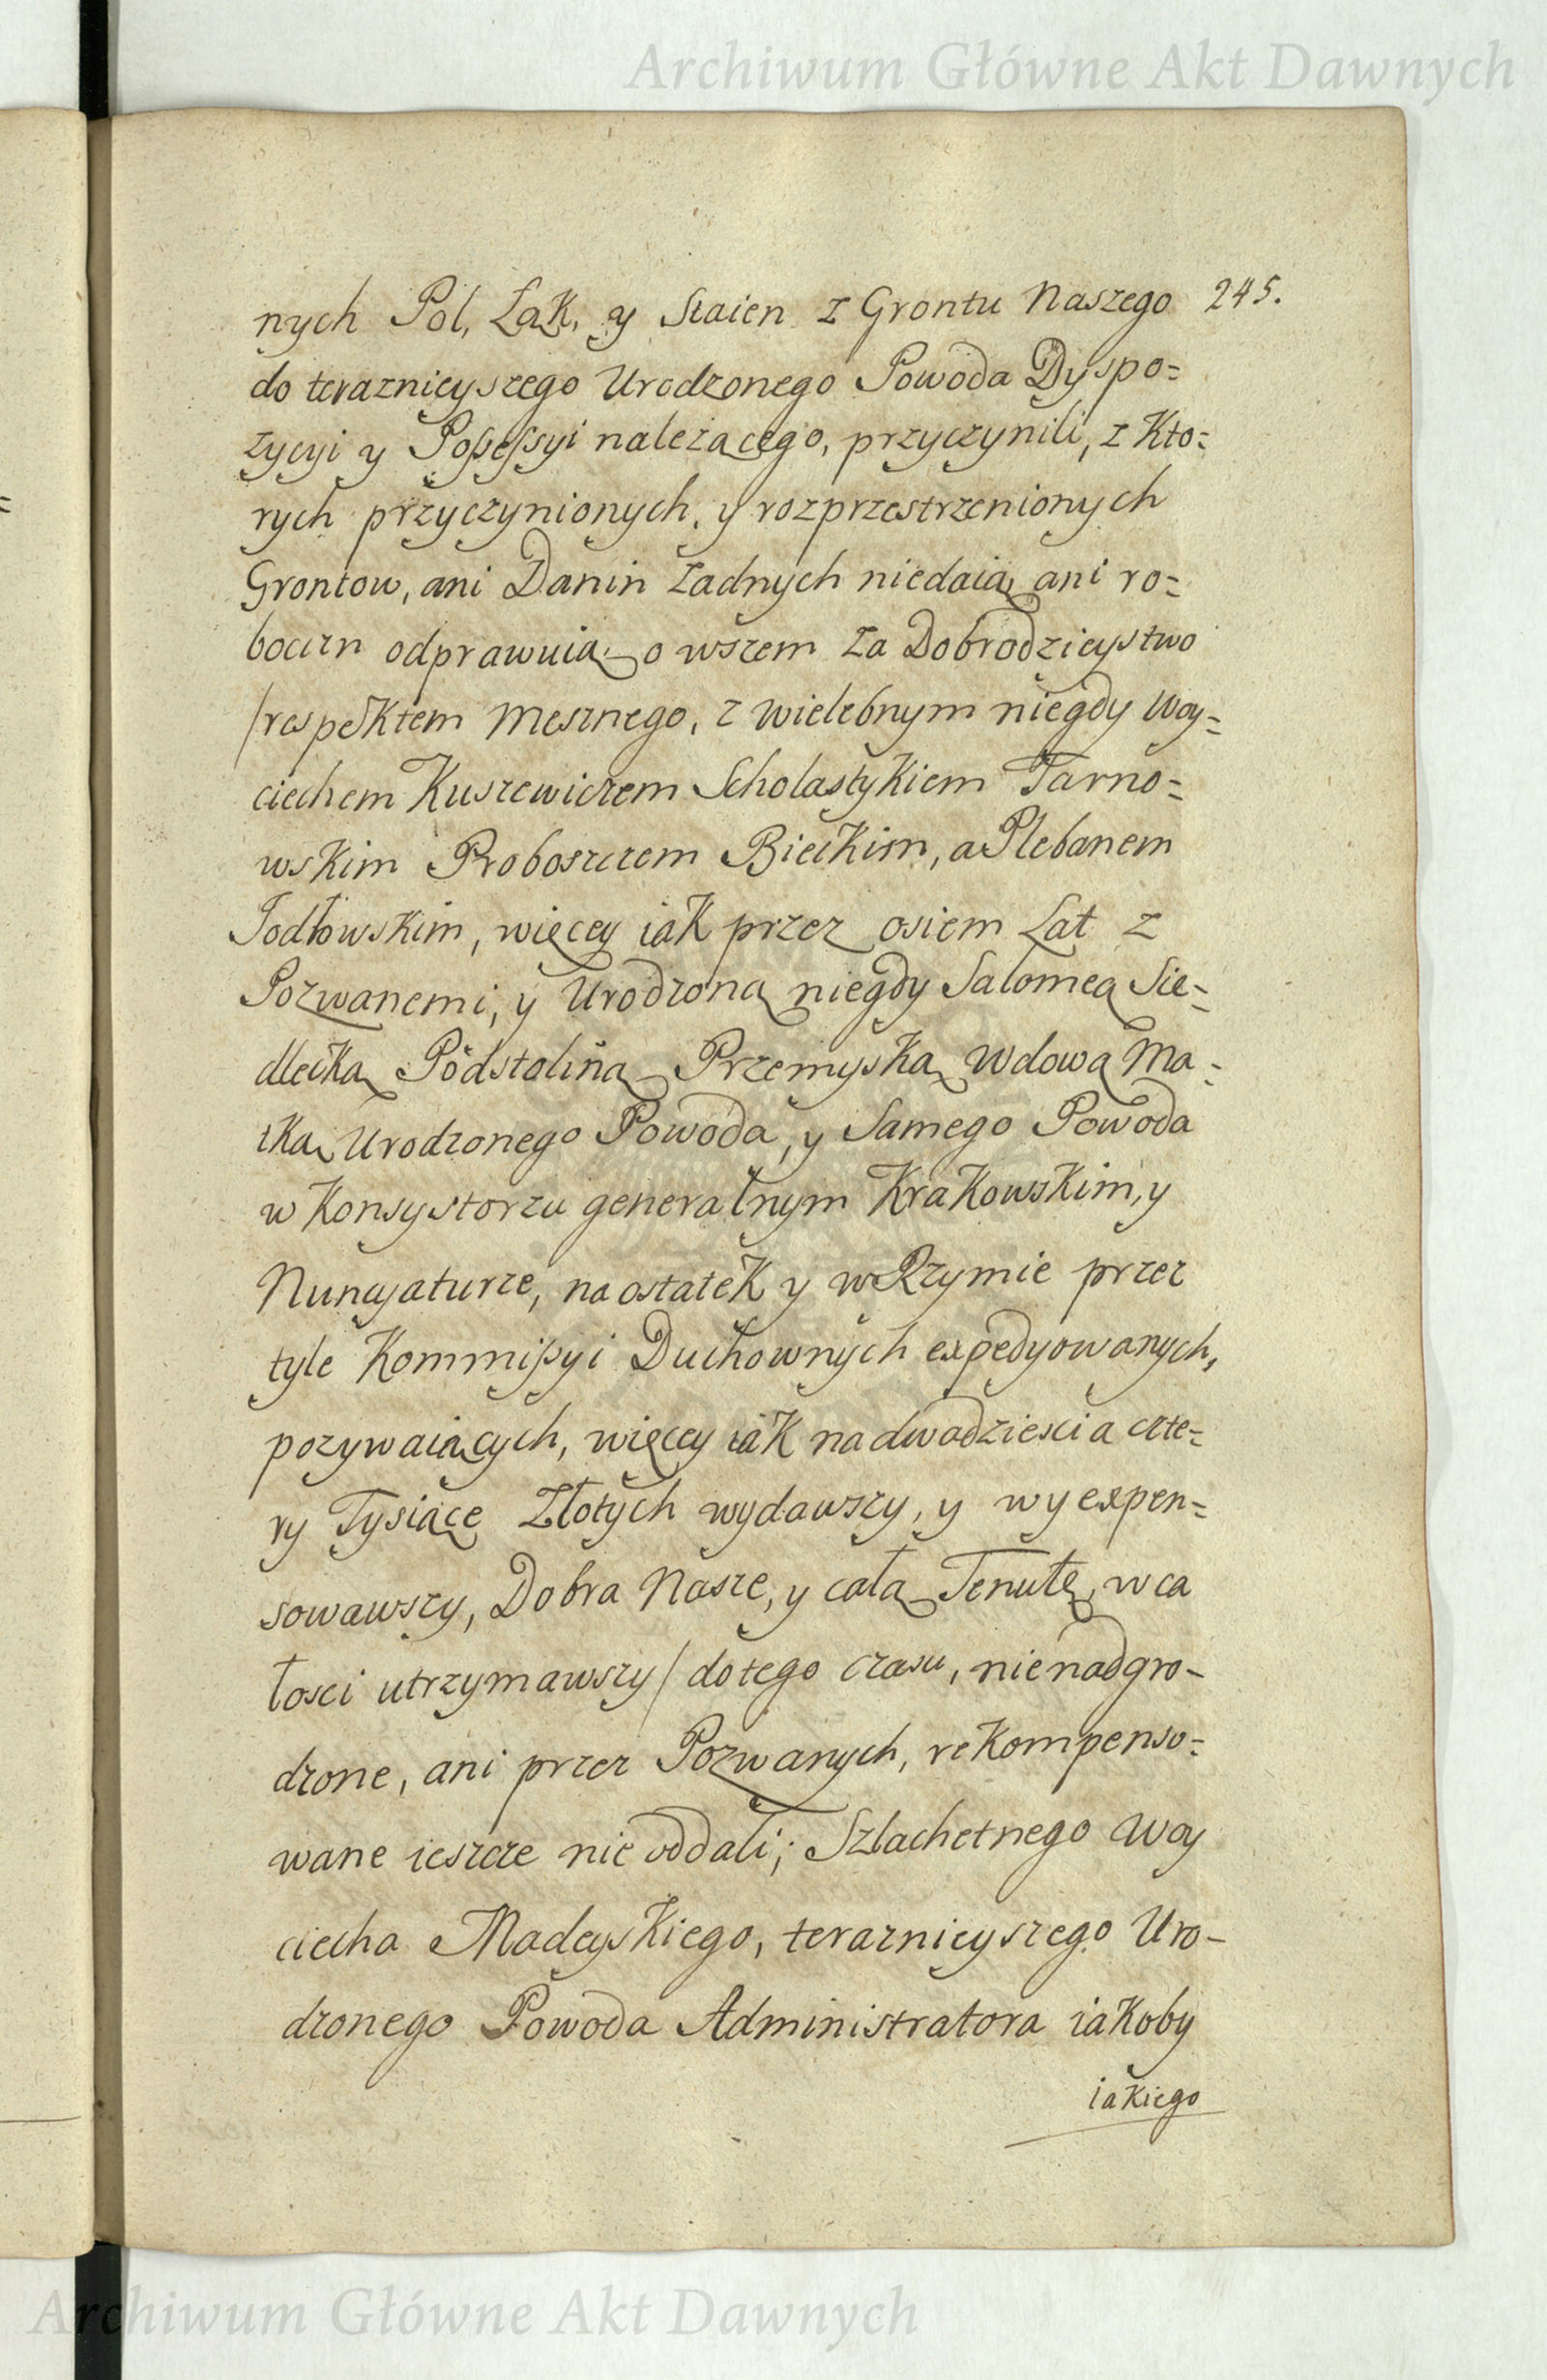 Archiwum Główne Akt Dawnych
nych Pol, Łąk, y Staien z Grontu Naszego 245.
do teraznieyszego Urodzonego Powoda Dyspo=
zycyi y Possessyi należącego, przyczynili, z Kto=
rych przyczynionych, y rozprzestrzenionych
Grontow, ani Danin Żadnych niedaią ani ro=
bocizn odprawuią o wszem za Dobrodzieystwo
/respektem Mesznego, z Wielebnym niegdy Woy=
ciechem Kuszewiczem Scholastykiem Tarno=
wskim Proboszczem Bieckim, a Plebanem
Jodłowskim, więcey iak przez osiem Lat z
Pozwanemi, y Urodzoną niegdy Salomeą Sie=
dlecką Podstoliną Przemyską Wdową Ma=
tką Urodzonego Powoda, y Samego Powoda
w Konsystorzu generalnym Krakowskim, y
Nuncyaturze, na ostatek y w Rzymie przez
tyle Kommissyi Duchownych expedyowanych,
pozywaiących, więcey iak na dwadziescia czte=
ry Tysiące Złotych wydawszy, y wyexpen=
sowawszy, Dobra Nasze, y całą Tenutę, w ca
łosci utrzymawszy/ do tego czasu, nienadgro-
dzone, ani przez Pozwanych, rekompenso=
wane ieszcze nie oddali; Szlachetnego Woy
ciecha Madeyskiego, teraznieyszego Uro-
dzonego Powoda Administratora iakoby
iakiego
Archiwum Główne Akt Dawnych